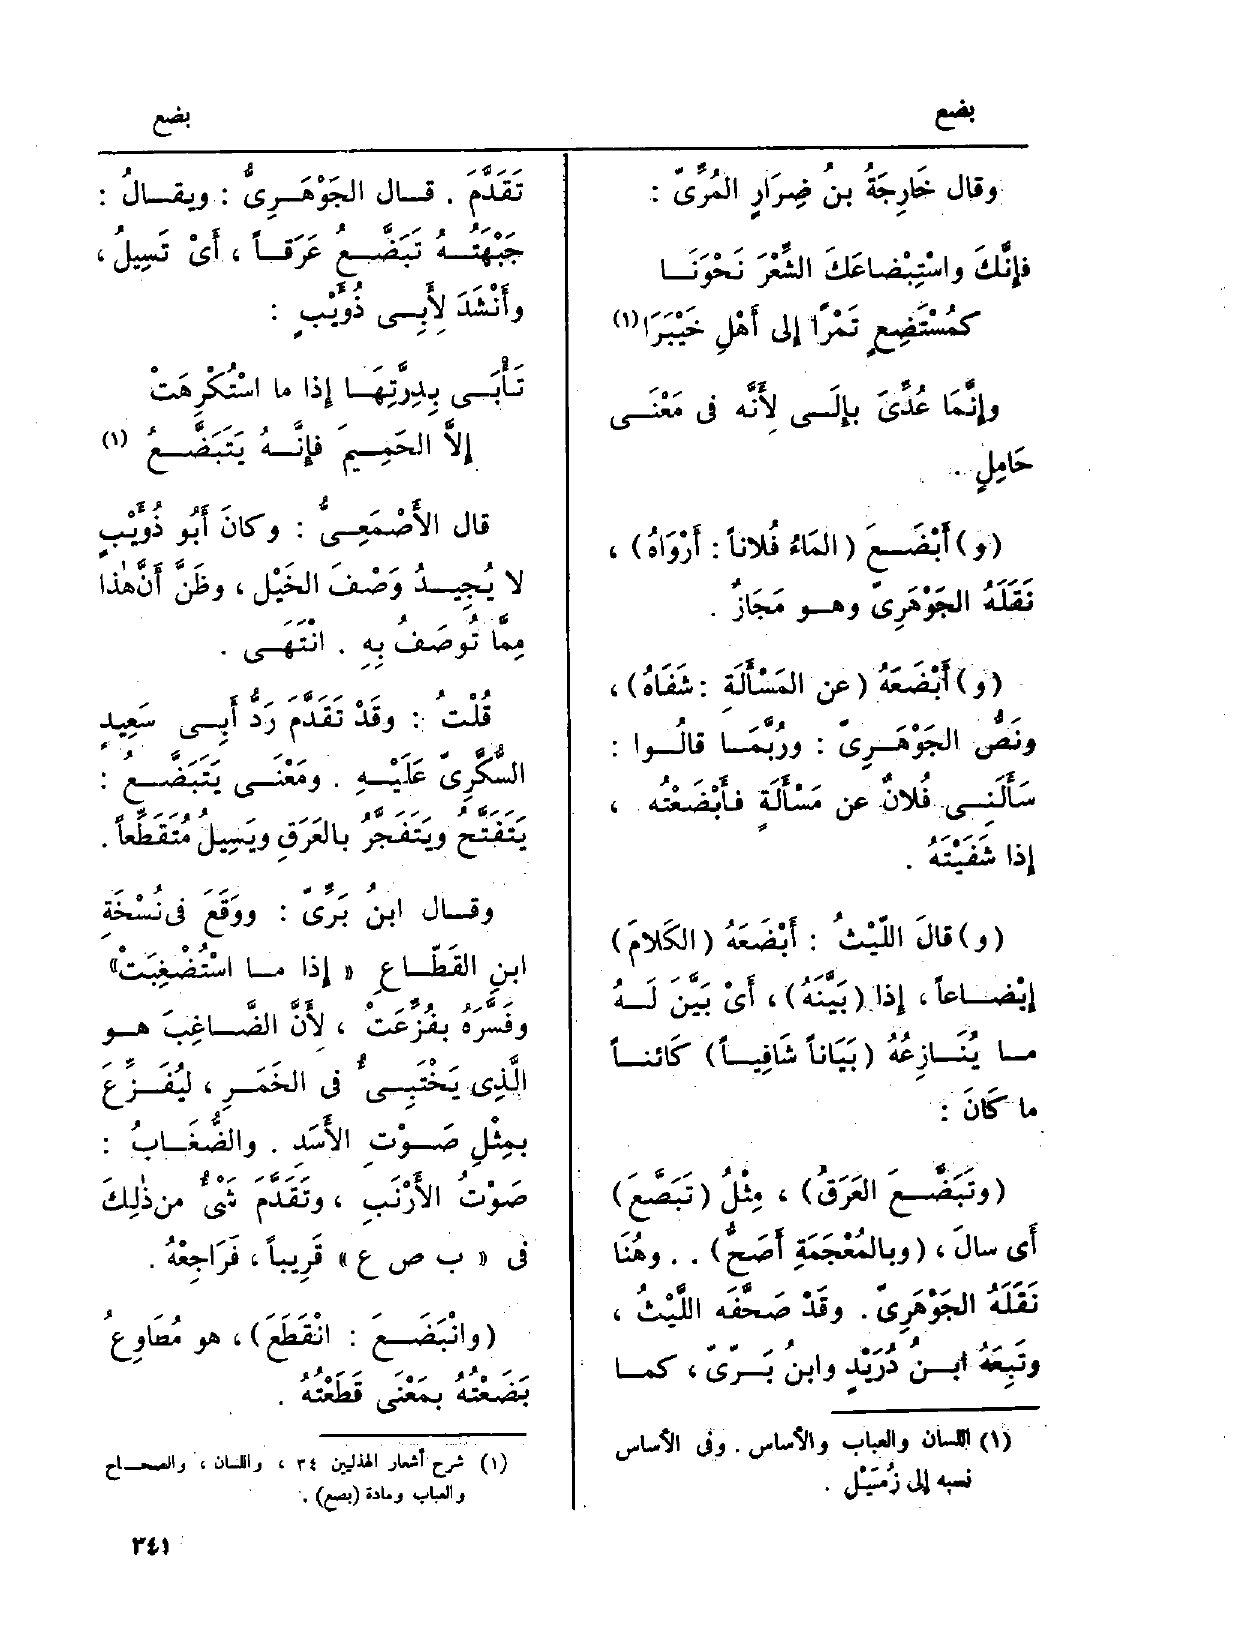 بضع
بضع
وقال خَارِجَةُ بنُ ضِرَارٍ المُرِّىّ :
فإنَّكَ واسْتِبْضاعَكَ الشِّعْرَ نَحْوَنَا
كمُسْتَبْضِعٍ تَمْرًا إلى أَهْلِ خَيْبَرَا (١)
وإنَّمَا عُدِّىَ بإلَى لِأَنَّه فى مَعْنَى
حَامِلٍ .
(و) أَبْضَعَ (المَاءُ فُلاناً : أَرْوَاهُ) ،
نَقَلَهُ الجَوْهَرِىّ وهو مَجَازٌ .
(و) أَبْضَعَهُ (عن المَسْأَلَةِ : شَفَاهُ) ،
ونَصُّ الجَوْهَرِىّ : ورُبَّمَا قالُوا :
سَأَلَنِى فُلانٌ عن مَسْأَلَةٍ فأَبْضَعْتُه ،
إذا شَفَيْتَهُ .
(و) قالَ اللَّيْثُ : أَبْضَعَهُ (الكَلامَ)
إبْضاعاً ، إذا (بَيَّنَهُ) ، أَىْ بَيَّنَ لَهُ
ما يُنَازِعُهُ (بَيَاناً شَافِياً) كَائناً
ما كَانَ :
(وتَبَضَّعَ العَرَقُ) ، مِثْلُ (تَبَصَّعَ)
أَى سالَ ، (وبالمُعْجَمَةِ أَصَحُّ) . . وهُنَا
نَقَلَهُ الجَوْهَرِىّ . وقَدْ صَحَّفَه اللَّيْثُ ،
وتَبِعَهُ ابنُ دُرَيْدٍ وابنُ بَرِّىّ ، كما
(١) اللسان والعباب والأساس . وفى الأساس
نسبه إلى زُمَيْل .
تَقَدَّمَ . قال الجَوْهَرِىُّ : ويقالُ :
جَبْهَتُهُ تَبَضَّعُ عَرَقاً ، أَىْ تَسِيلُ ،
وأَنْشَدَ لِأَبِى ذُؤَيْبٍ :
تَأْبَى بِدِرَّتِهَا إذا ما اسْتُكْرِهَتْ
إلاَّ الحَمِيمَ فإنَّهُ يَتَبَضَّعُ (١)
قال الأَصْمَعِىُّ : وكانَ أَبُو ذُؤَيْبٍ
لا يُجِيدُ وَصْفَ الخَيْلِ ، وظَنَّ أَنَّ هٰذا
مِمَّا تُوصَفُ بِهِ . انْتَهَى .
قُلْتُ : وقَدْ تَقَدَّمَ رَدُّ أَبِى سَعِيدٍ
السُّكَّرِىّ عَلَيْهِ . ومَعْنَى يَتَبَضَّعُ :
يَتَفَتَّحُ ويَتَفَجَّرُ بالعَرَقِ ويَسِيلُ مُتَقَطِّعاً .
وقال ابنُ بَرِّىّ : ووَقَعَ فى نُسْخَةِ
ابنِ القَطَّاعِ « إذا ما اسْتُضْغِبَتْ»
وفَسَّرَهُ بفُزِّعَتْ ، لأَنَّ الضَّاغِبَ هو
الَّذِى يَخْتَبِىءُ فى الخَمَرِ ، لِيُفَزِّعَ
بمِثْلِ صَوْتِ الأَسَدِ . والضُّغَابُ :
صَوْتُ الأَرْنَبِ ، وتَقَدَّمَ شَىْءٌ من ذٰلِكَ
فى « ب ص ع » قَرِيباً ، فَرَاجِعْهُ .
(وانْبَضَعَ : انْقَطَعَ) ، هو مُطَاوِعُ
بَضَعْتُهُ بمَعْنَى قَطَعْتُهُ .
(١) شرح أشعار الهذليين ٣٤ ، واللسان ، والصحاح
والعباب ومادة (بصع) .
٣٤١